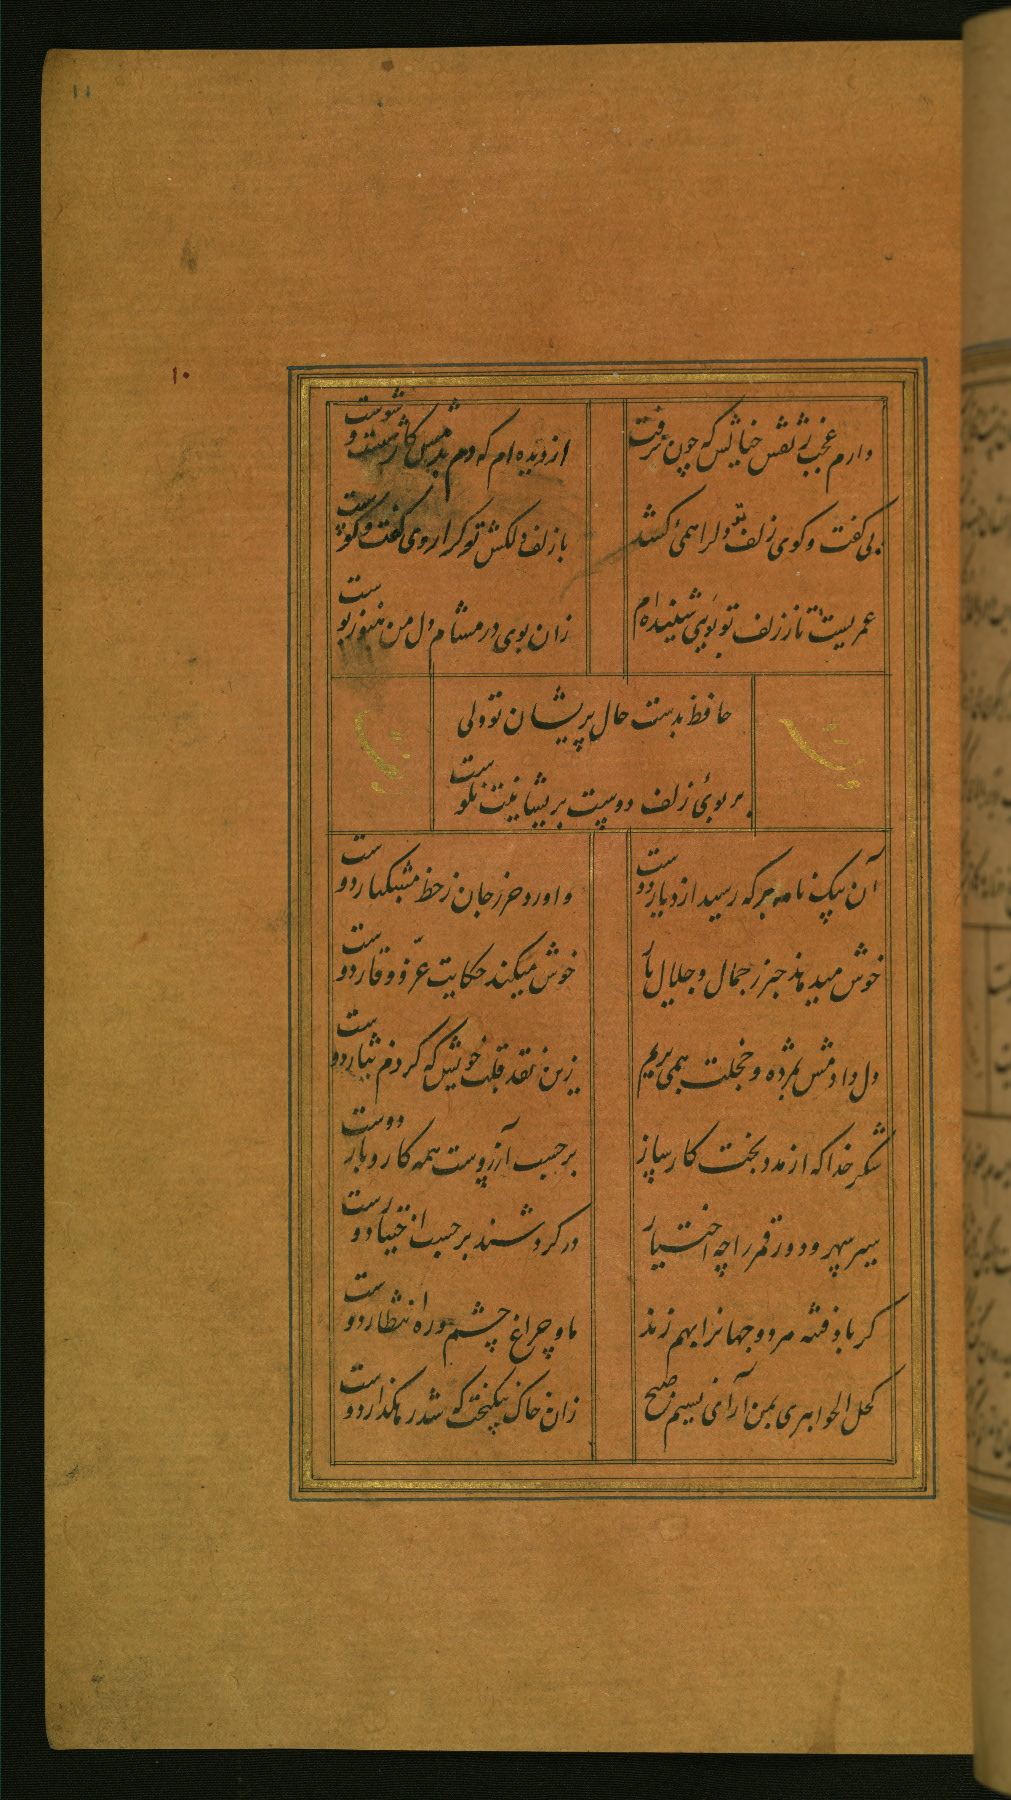 ۱۱
۱۰
دارم عجب ز نقش خیالش که چون نرفت
از دیده ام که دم بدمش کار شست و شوست
بی گفت و کوی زلف تو دلرا همی کشد
با زلف دلکش تو کرا روی گفت و کوست
عمریست تا ز زلف تو بویی شنیده ام
زان بوی در مشام دل من هنوز بوست
حافظ بدست حال پریشان تو ولی
بر بوی زلف دوست پریشانیت نکوست
آن پیک نامه بر که رسید از دیار دوست
و اورد حرز جان ز خط مشکبار دوست
خوش میدهد خبر ز جمال و جلال یار
خوش میکند حکایت عزّ و وقار دوست
دل دادمش بمژده و خجلت همی برم
زین نقد قلب خویش که کردم نثار دوست
شکر خدا که از مدد بخت کارساز
بر حسب آرزوست همه کار و بار دوست
سیر سپهر و دور قمر را چه اختیار
در کردشند بر حسب اختیار دوست
کر باد فتنه هر دو جهانرا بهم زند
ما و چراغ چشم و ره انتظار دوست
کحل الجواهری بمن آر ای نسیم صبح
زان خاک نیکبخت که شد رهکذار دوست